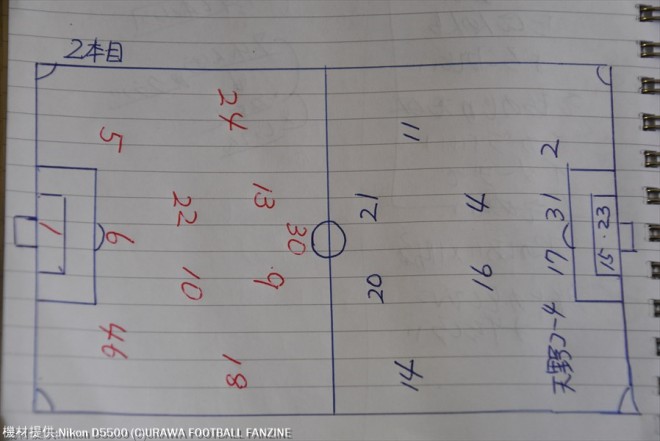 2本目
24
11
5
2
13
22
21
4
31
15・23
1
6
30
17
10
9
20
16
46
18
14
天野コーチ
機材提供:Nikon D5500 (C)URAWA FOOTBALL FANZINE